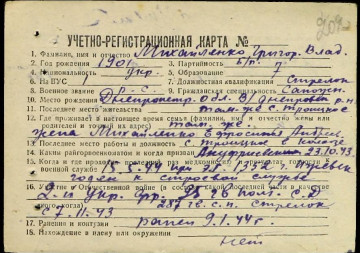 УЧЕТНО-РЕГИСТРАЦИОННАЯ КАРТА №
1. Фамилия, имя и отчество Михайленко Григор. Влад.
2. Год рождения 1901 3. Партийность б/п
4. Национальность укр. 5. Образование 7
6. Из ВУС 7. Должностная квалификация Стрелок
8. Военное звание Р-С- 9. Гражданская специальность Сапожн.
10. Место рождения Днепропетр. обл. В/Днепровск. р-н
11. Последнее место жительства там-же
12. Где проживает в настоящее время семья (фамилия, имя и отчество жены или родителей и точный адрес) там же
жена Михайленко Ефросинья
13. Последнее место работы и должность в колхозе
14. Каким райвоенкоматом и когда призван 23.10.43
15. Когда и где проходил раз медкомиссию годности к военной службе
годен к строевой службе
16. Участие в Отечественной войне (в составе какой последней части и в качестве кого, когда) 2-й Укр. фр.
287 гв. с.п. Стрелок
с 7.11.43
17. Ранения и контузии ранен 9.1.44г.
18. Нахождение в плену или окружении нет